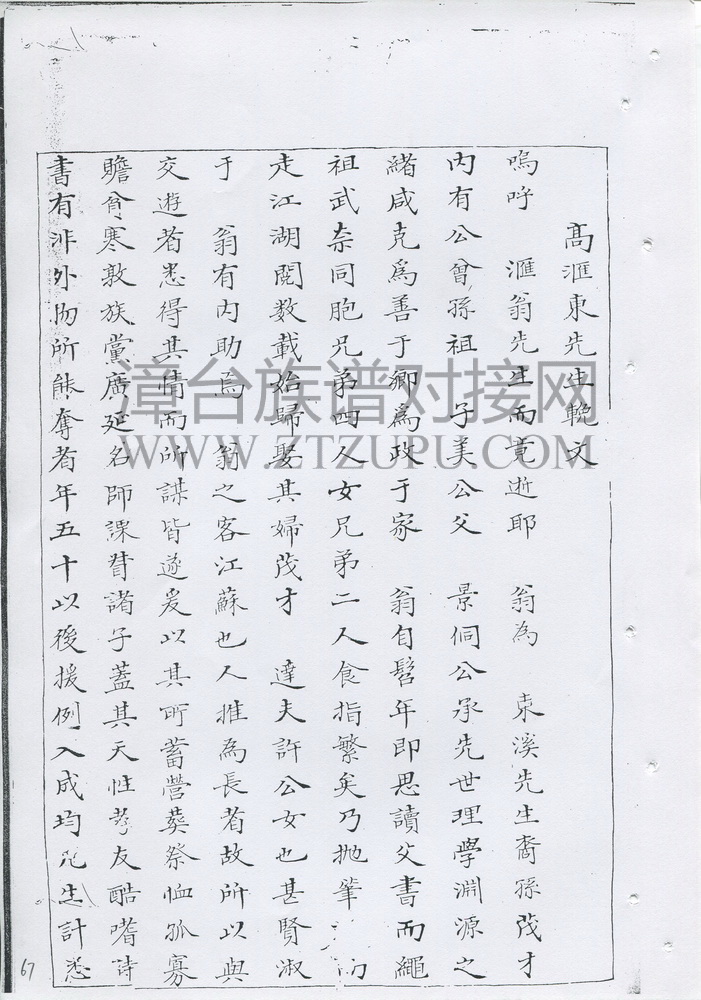 高滙東先生輓文
嗚呼 滙翁先生而竟逝耶 翁為 東溪先生裔孫茂才
內有公曾孫祖 子美公父 景侗公承先世理學淵源之
緒咸克爲善于鄉為政于家 翁自髫年即思讀父書而繩
祖武奈同胞兄弟四人女兄弟二人食指繁矣乃拋筆
走江湖閱数載始歸娶其婦茂才 達夫許公女也甚賢淑
于 翁有內助焉 翁之客江蘇也人推為長者故所以與
交遊者悉得其情而所謀皆遂爰以其所蓄營葵祭恤孤寡
贍貧寒敦族黨廣延名師課督諸子蓋其天性孝友酷嗜诗
書有非外物所能奪者年五十以後援例入成均凡生計悉
67
漳台族谱对接网
WWW.ZTZUPU.COM